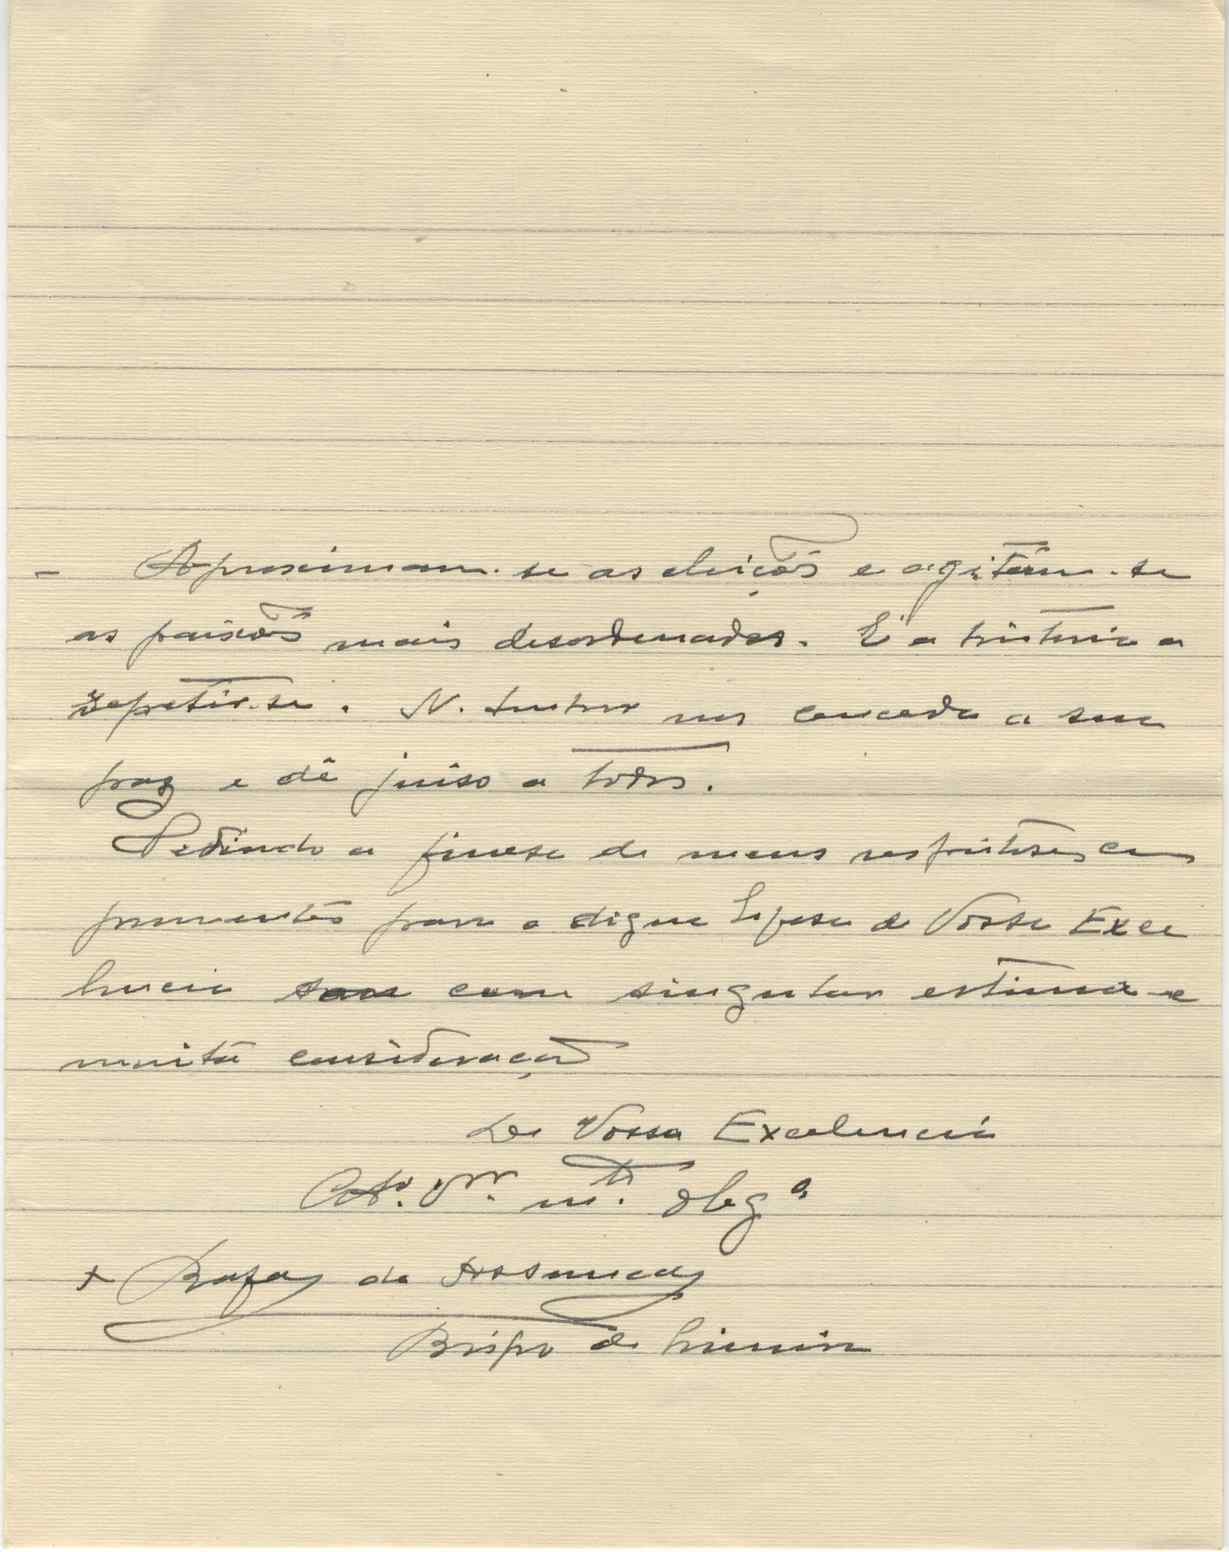 - Aproximam-se as eleições e agitam-se
as paixões mais desordenadas. E' a historia a
repetir-se. N. Senhor nos conceda a sua
paz e dê juiso a todos.
Pedindo a finesa de meus respeitosos cum
primentos para a digna Esposa de Vossa Exce
lencia com singular estima e
muita consideração
De Vossa Excelencia
Ato. Vr. mto. obgo
+ Rafael da Assunção
Bispo de Limira